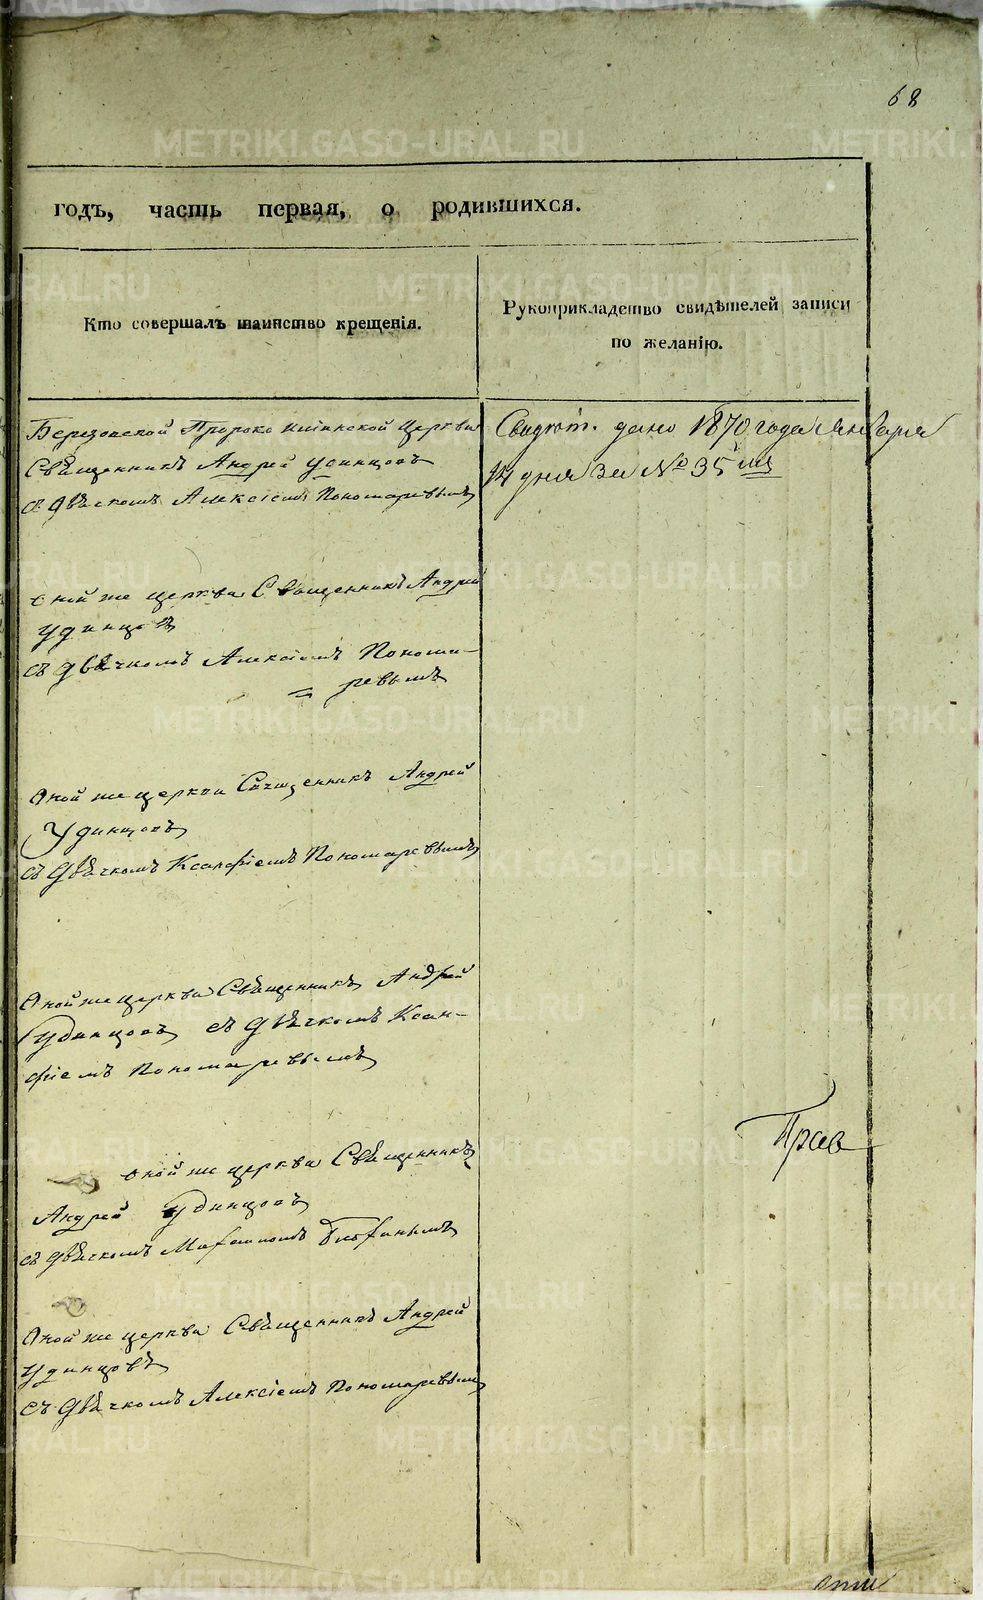 68
годъ, часть первая, о родившихся.
Кто совершалъ таинство крещенія.
Рукоприкладство свидѣтелей записи
по желанію.
Березовской Пророко Ильинской Церкви
Священникъ Андрей Удинцовъ
съ дьячкомъ Алексіемъ Пономаревымъ
Свидѣт. дано 1870 года Января
14 дня за № 35
оной же церкви Священникъ Андрей
Удинцовъ
съ дьячкомъ Алексіемъ Понома-
ревымъ
Оной же церкви Священникъ Андрей
Удинцовъ
съ дьячкомъ Ксанфіемъ Пономаревымъ
Оной же церкви Священникъ Андрей
Удинцовъ съ дьячкомъ Ксан-
фіемъ Пономаревымъ
оной же церкви Священникъ
Андрей Удинцовъ
съ дьячкомъ
Прав
Оной же церкви Священникъ Андрей
Удинцовъ
съ дьячкомъ Алексіемъ Пономаревымъ
METRIKI.GASO-URAL.RU